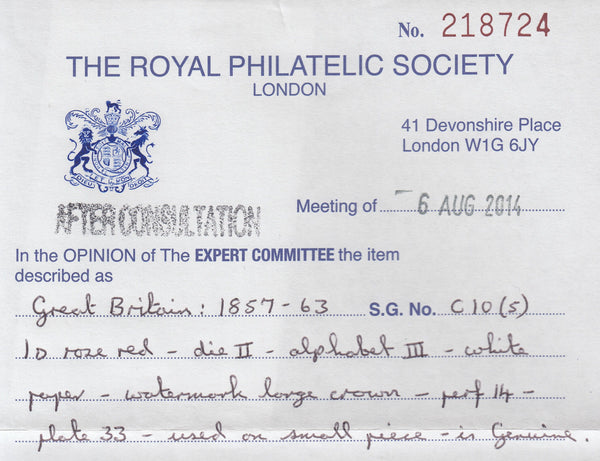 No. 218724
THE ROYAL PHILATELIC SOCIETY
LONDON
41 Devonshire Place
London W1G 6JY
AFTER CONSULTATION
Meeting of 6 AUG 2014
In the OPINION of The EXPERT COMMITTEE the item
described as
Great Britain: 1857-63 S.G. No. C10(5)
1D rose red - die II - alphabet III - white
paper - watermark large crown - perf 14 -
plate 33 - used on small piece - is Genuine.